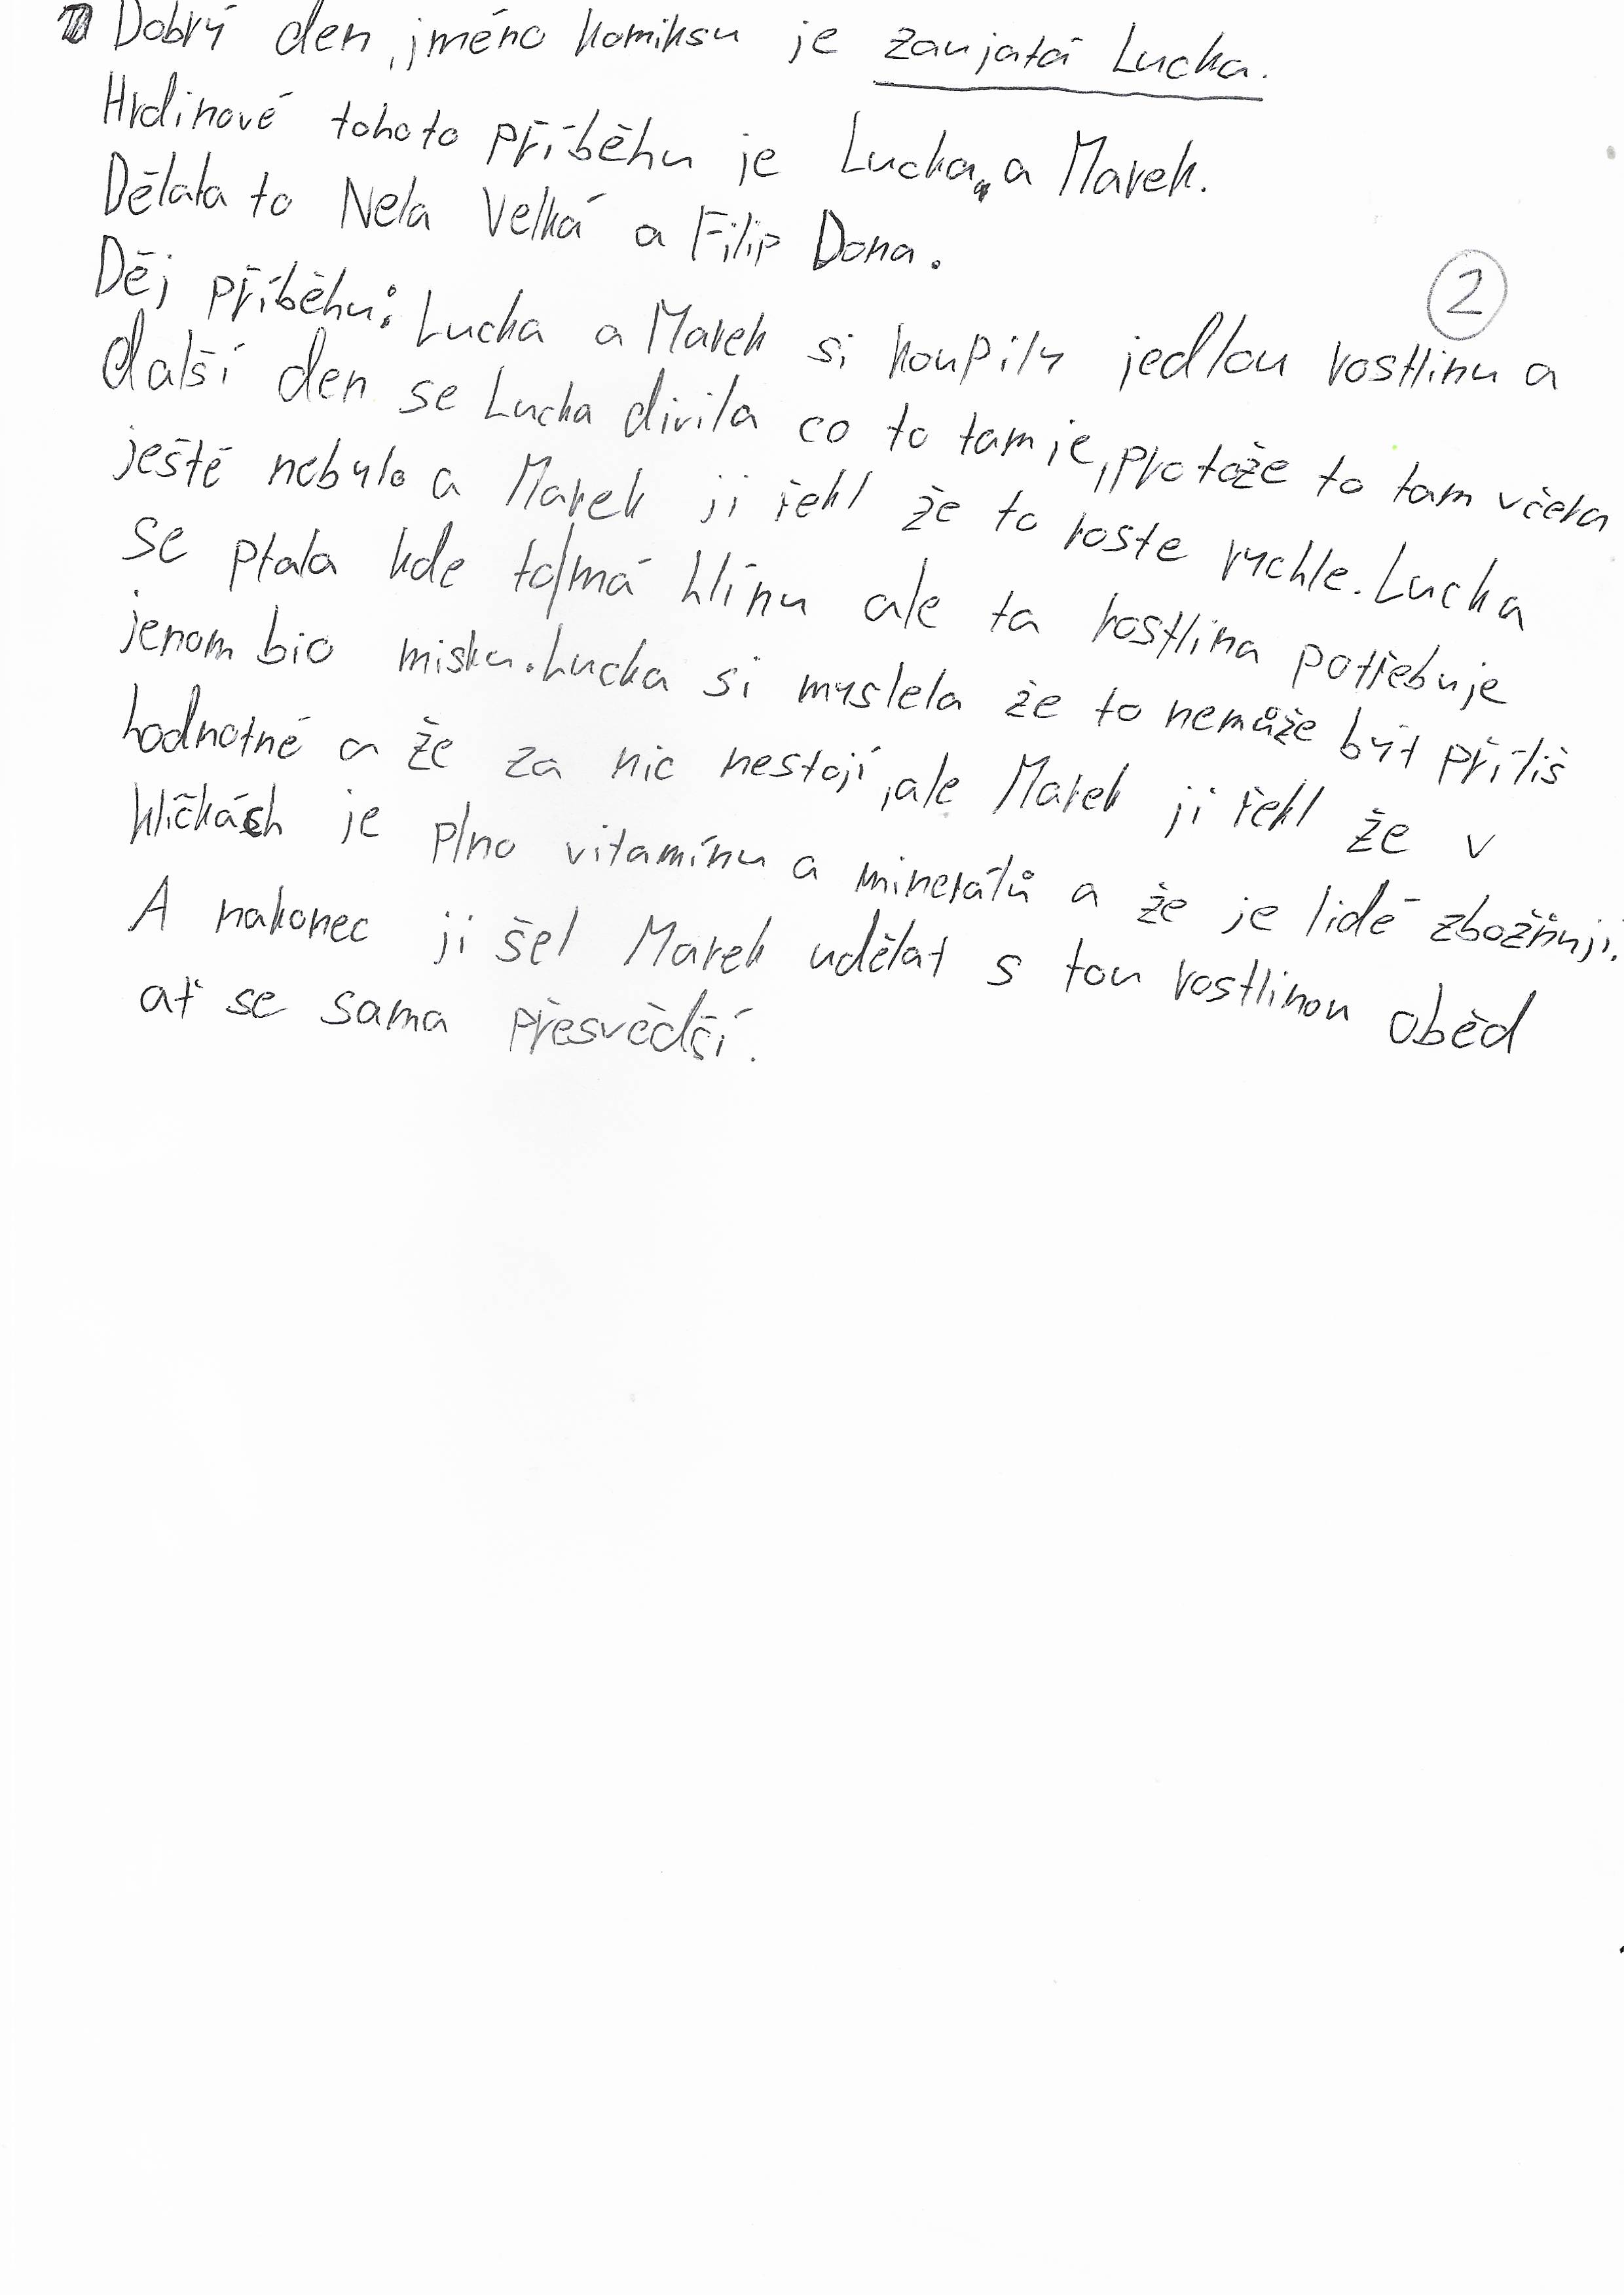 Dobrý den, jméno komiksu je zaujatá Lucka.
Hrdinové tohoto příběhu je Lucka, a Marek.
Dělala to Nela Velká a Filip Dona.
2
Děj příběhu: Lucka a Marek si koupily jedlou rostlinu a
další den se Lucka divila co to tam je, protože to tam včera
ještě nebylo a Marek ji řekl že to roste rychle. Lucka
se ptala kde to má hlínu ale ta rostlina potřebuje
jenom bio misku. Lucka si myslela že to nemůže být příliš
hodnotné a že za nic nestojí, ale Marek ji řekl že v
klíčkách je plno vitamínu a minerálů a že je lidé zbožňují.
A nakonec ji šel Marek udělat s tou rostlinou oběd
ať se sama přesvědší.